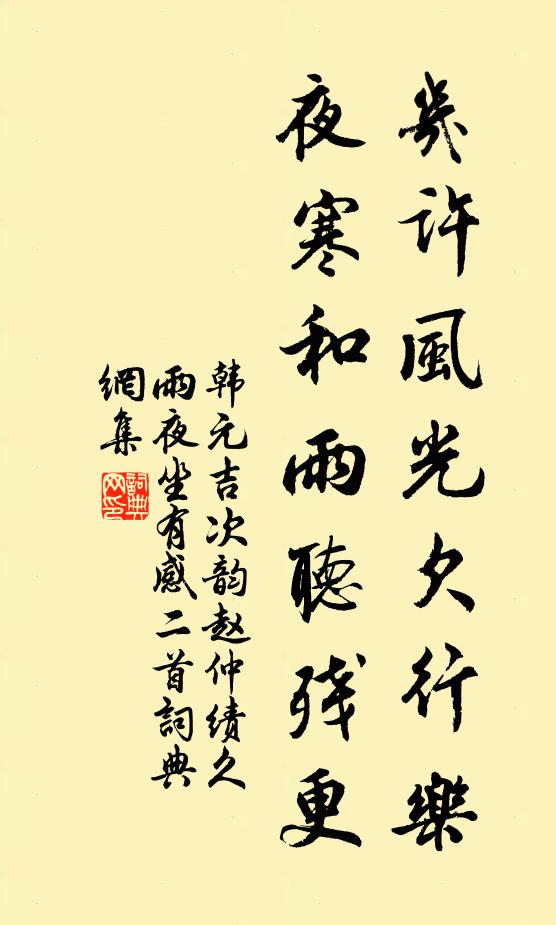 幾許風光欠行樂
夜寒和雨聽残更
韩元吉次韵赵仲績久
雨夜坐有感二首詞典
網集
詞典网印